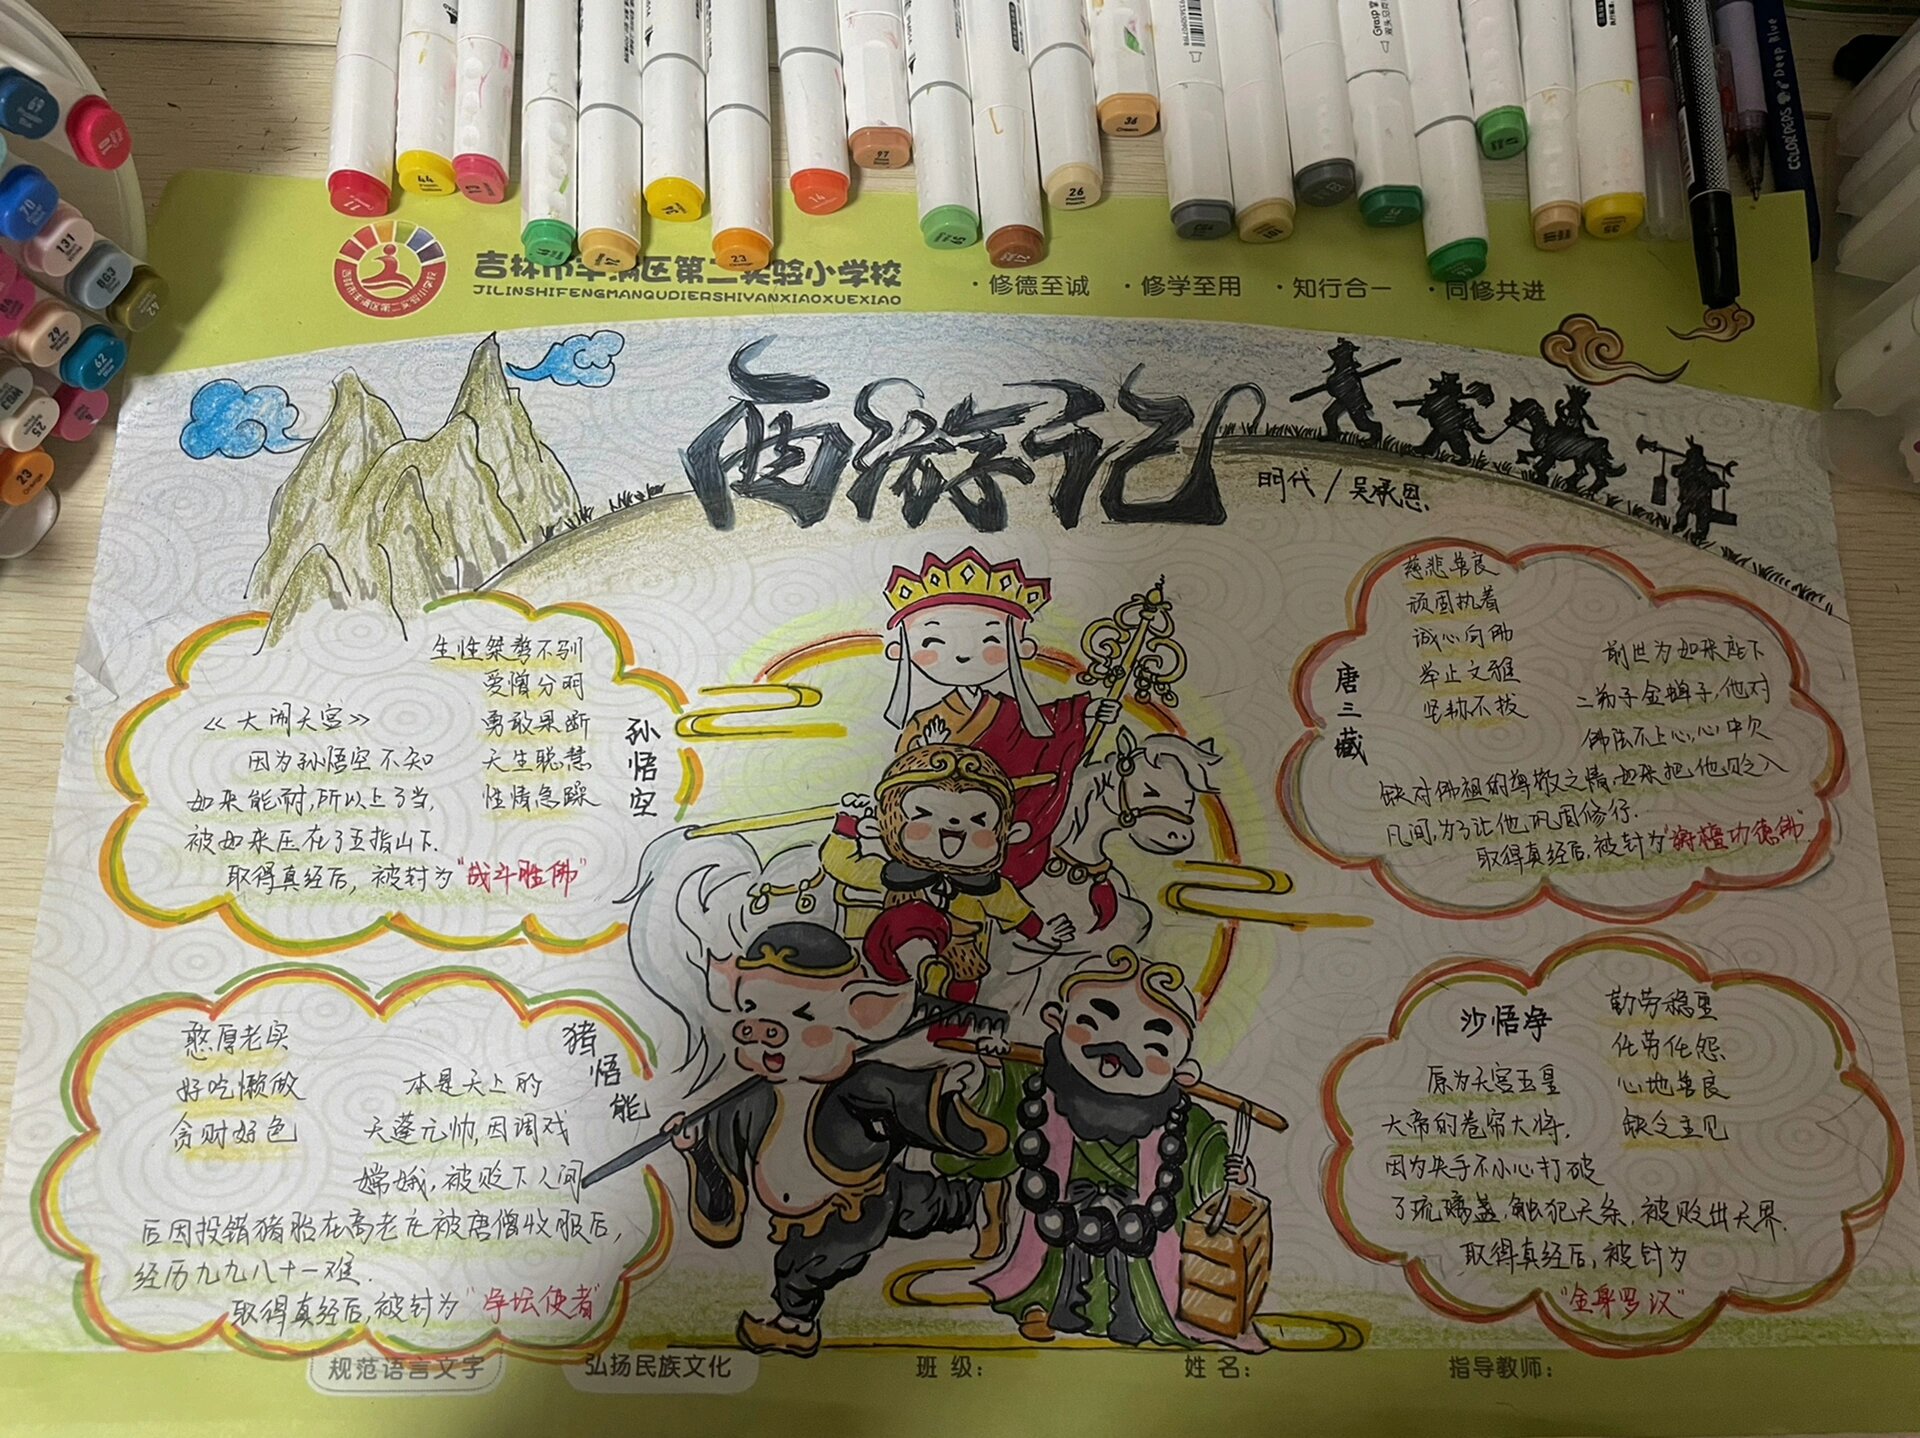 吉林市丰满区第二实验小学校
JILINSHIFENGMANQUDIERSHIYANXIAOXUEXIAO
·修德至诚 ·修学至用 ·知行合一 ·同修共进
西游记
明代/吴承恩.
生性桀骜不驯
爱憎分明
勇敢果断
天生聪慧
性情急躁
孙悟空
《大闹天宫》
因为孙悟空不知
如来能耐,所以上了当,
被如来压在了五指山下.
取得真经后,被封为“战斗胜佛”
慈悲善良
顽固执着
诚心向佛
举止文雅
坚韧不拔
唐三藏
前世为如来座下
二弟子金蝉子,他对
佛法不上心,心中欠
缺对佛祖的尊敬之情,如来把他贬入
凡间,为了让他巩固修行.
取得真经后,被封为“旃檀功德佛”.
憨厚老实
好吃懒做
贪财好色
猪悟能
本是天上的
天蓬元帅,因调戏
嫦娥,被贬下人间
后因投错猪胎在高老庄被唐僧收服后,
经历九九八十一难.
取得真经后,被封为“净坛使者”
沙悟净
勤劳稳重
任劳任怨
心地善良
缺乏主见
原为天宫玉皇
大帝的卷帘大将.
因为失手不小心打破
了琉璃盏,触犯天条,被贬出天界.
取得真经后,被封为
“金身罗汉”
规范语言文字
弘扬民族文化
班 级:
姓 名:
指导教师:
44
14
23
97
26
36
35
70
131
863
29
62
25
23
COLOR PENS Deep Blue
Grasp